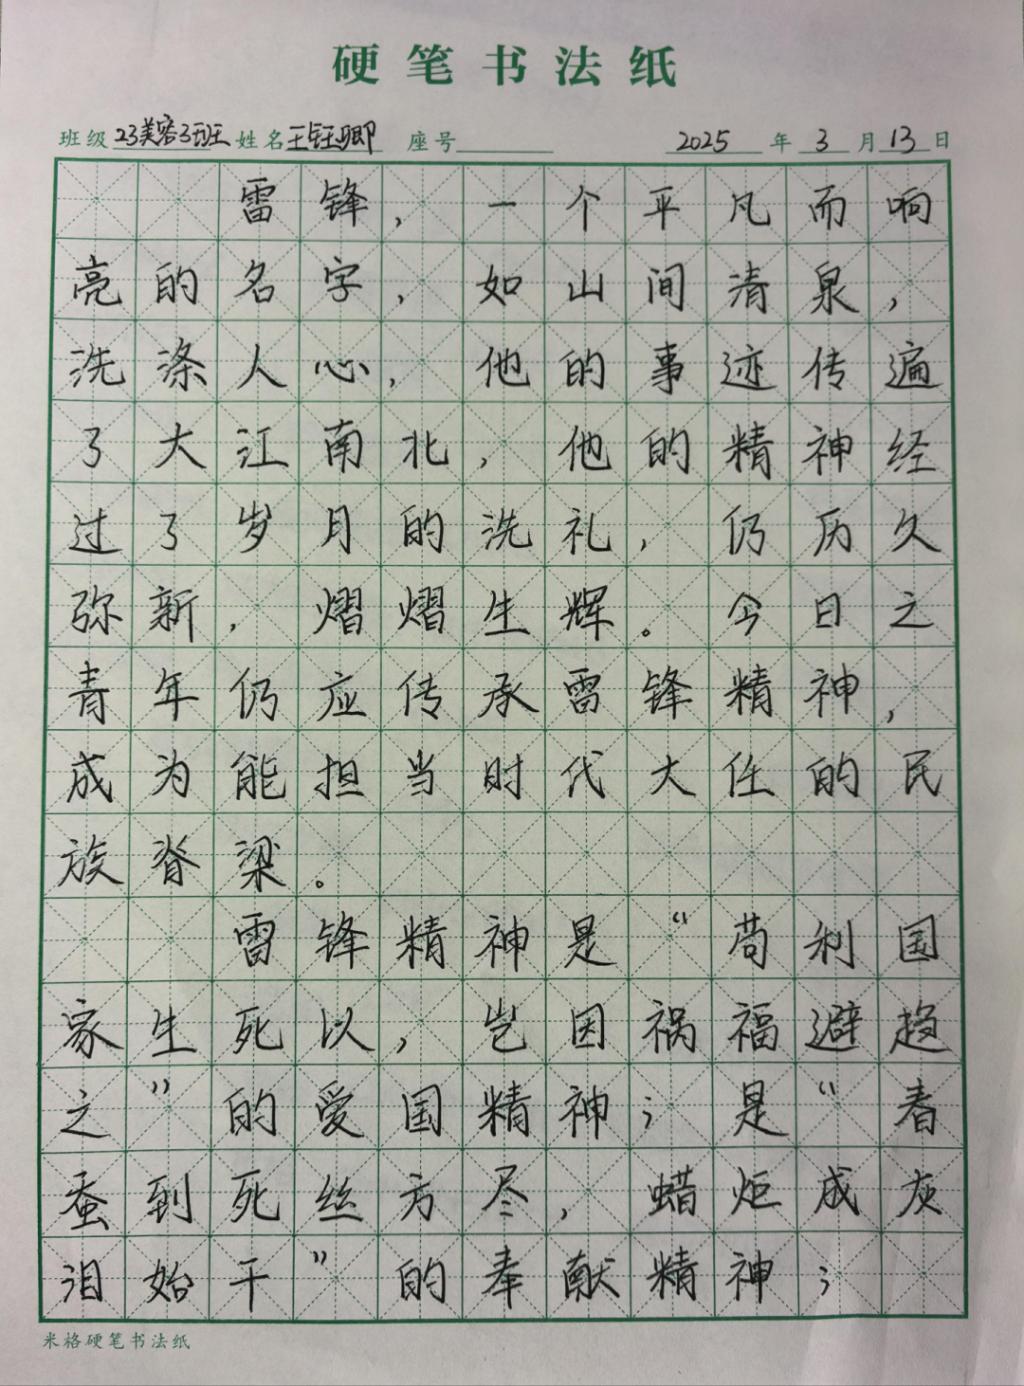 硬笔书法纸
班级 23美容3班 姓名 王钰卿 座号 2025 年 3 月 13 日
雷锋，一个平凡而响
亮的名字，如山间清泉，
洗涤人心，他的事迹传遍
了大江南北，他的精神经
过了岁月的洗礼，仍历久
弥新，熠熠生辉。今日之
青年仍应传承雷锋精神，
成为能担当时代大任的民
族脊梁。
雷锋精神是“苟利国
家生死以，岂因祸福避趋
之”的爱国精神；是“春
蚕到死丝方尽，蜡炬成灰
泪始干”的奉献精神；
米格硬笔书法纸